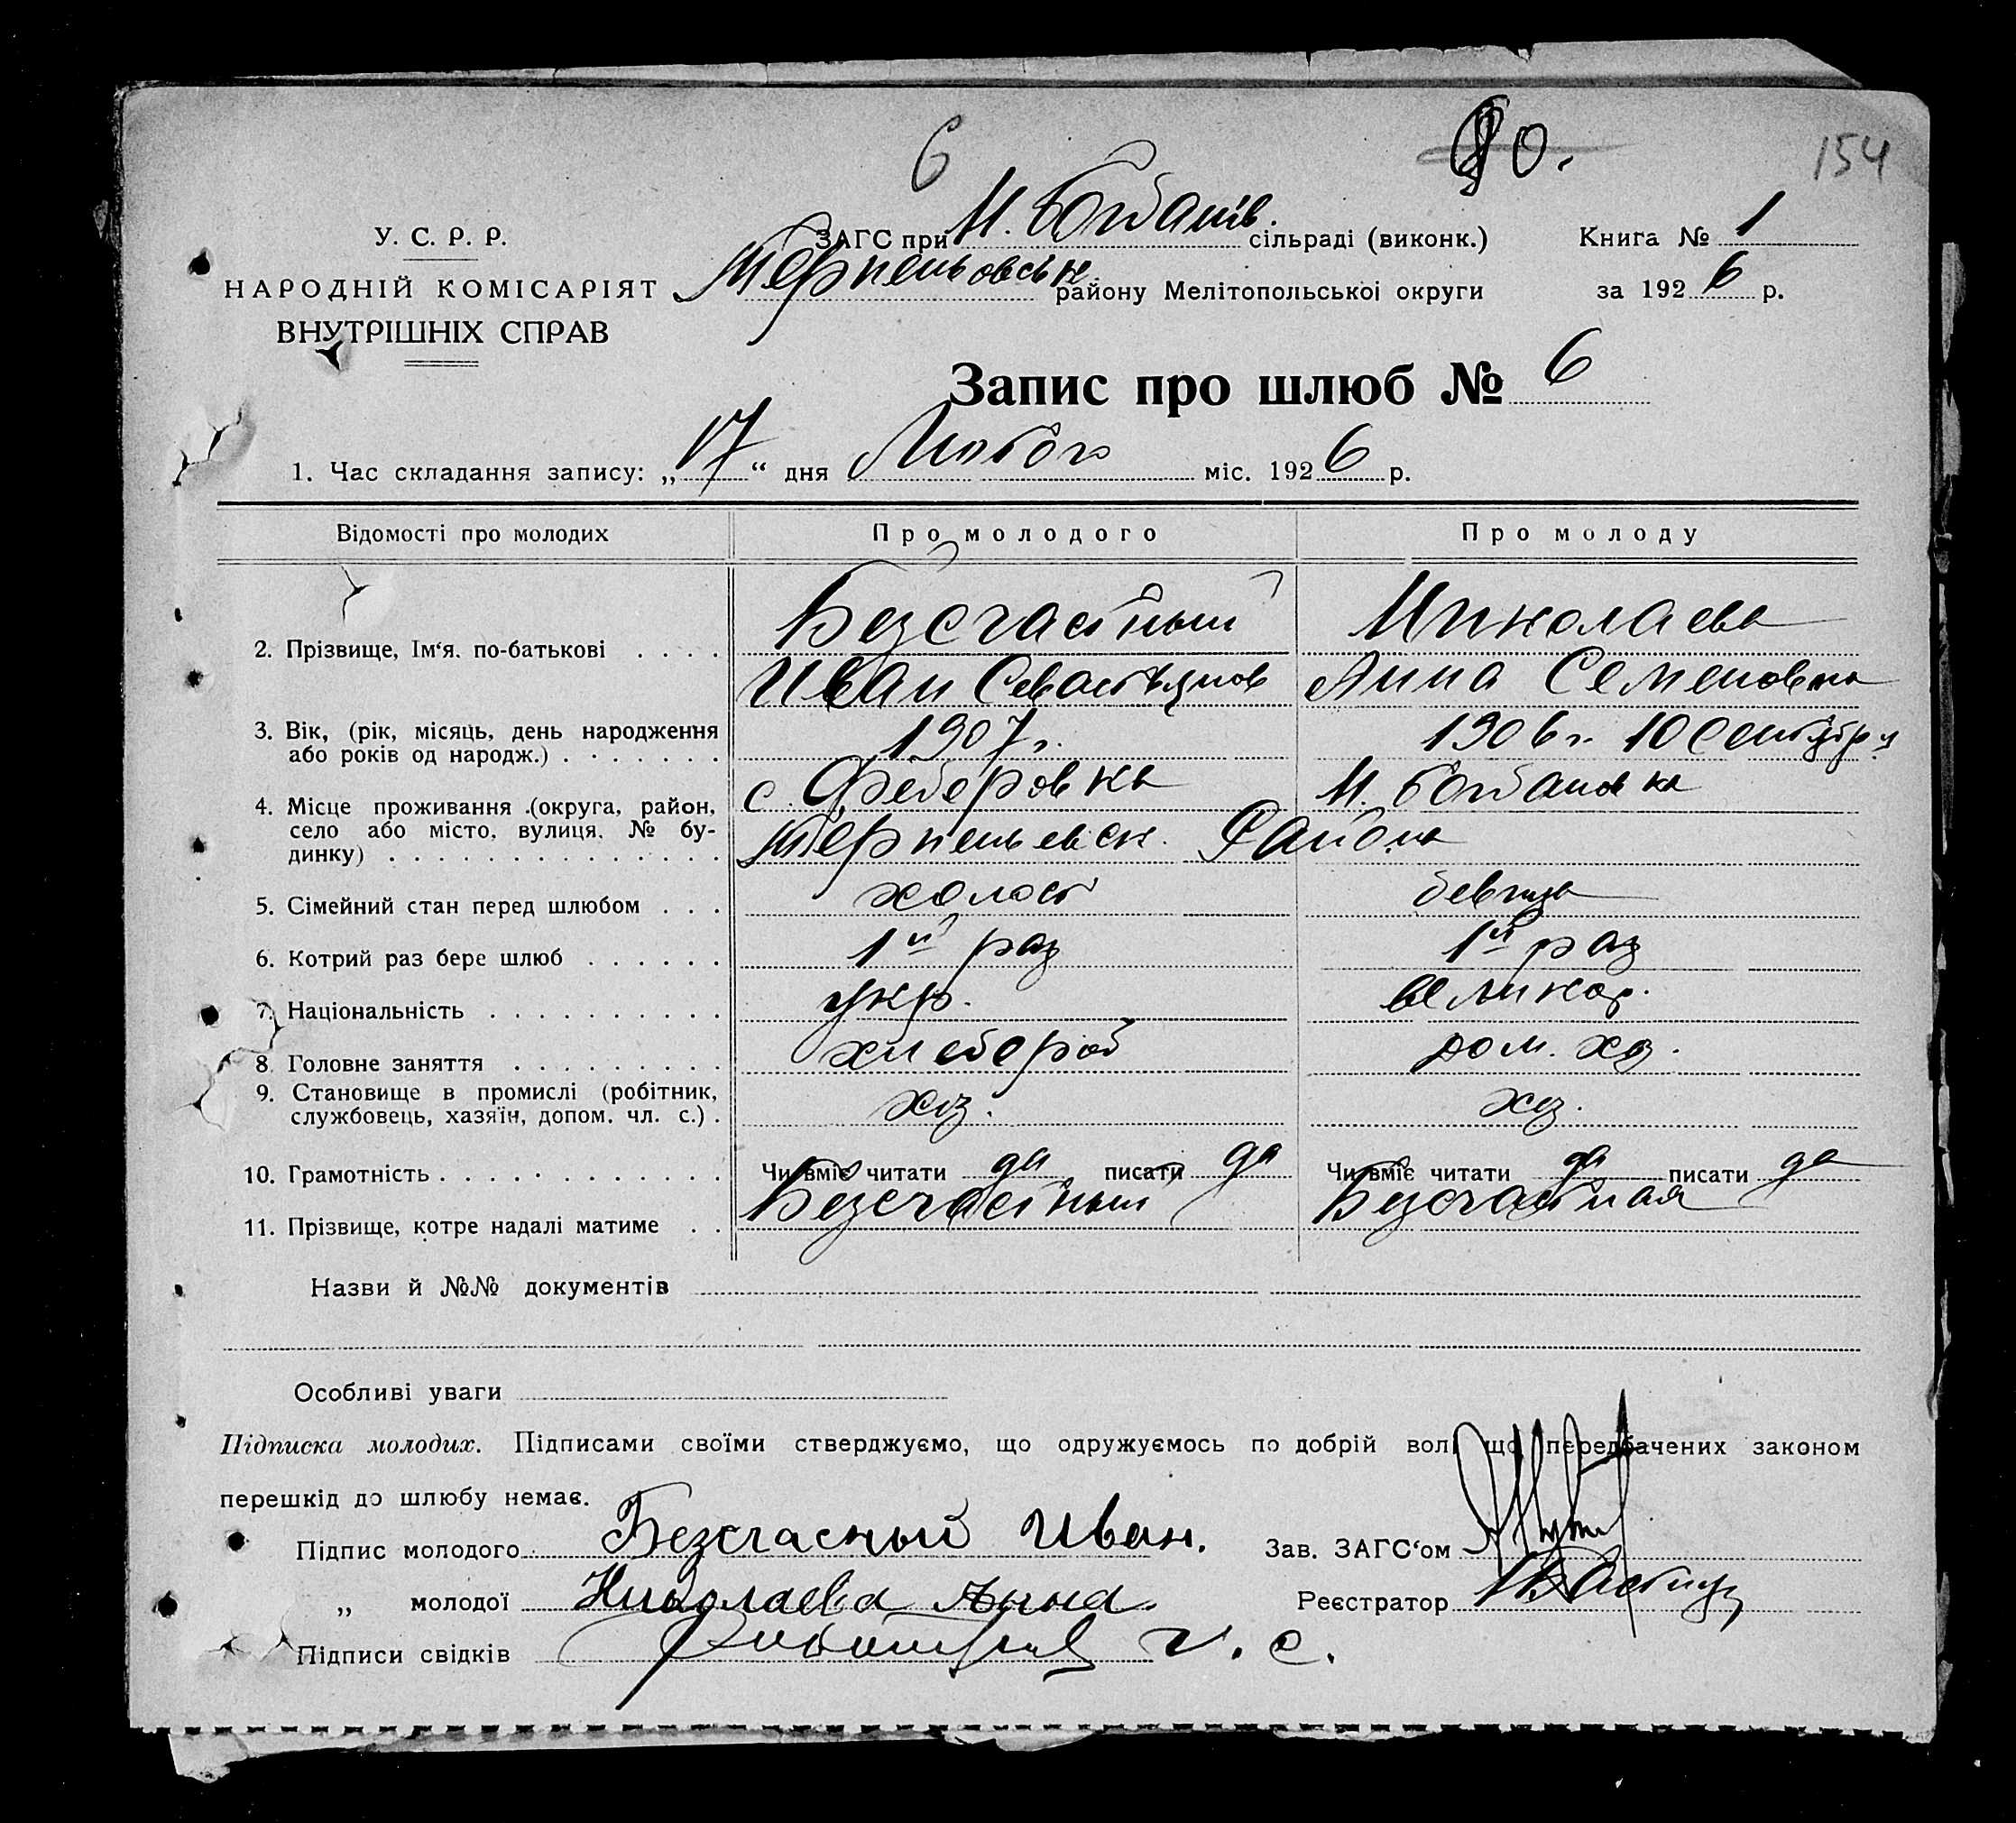 6
154
У. С. Р. Р.
НАРОДНІЙ КОМІСАРІЯТ
ВНУТРІШНІХ СПРАВ
ЗАГС при М. Богданів. сільраді (виконк.)
Терпеньовськ. району Мелітопольської округи
Книга № 1
за 1926 р.
Запис про шлюб № 6
1. Час складання запису: „17“ дня Лютого міс. 1926 р.
Відомості про молодих Про молодого Про молоду
2. Прізвище, Ім‘я. по-батькові . . . . Безсчастный Миколаева
Иван Севастьянов Анна Семеновна
3. Вік, (рік, місяць, день народження або років од народж.) . . . . . . . 1907 г. 1906 г. 10 Сентября
4. Місце проживання (округа, район, село або місто, вулиця, № будинку) . . . . . . с. Федоровка М. Богдановка
Терпеньевск. Района
5. Сімейний стан перед шлюбом . . . холост девица
6. Котрий раз бере шлюб . . . . . . 1й раз 1й раз
7. Національність . . . . . . . . . . укр. великор.
8. Головне заняття . . . . . . . . . хлебороб дом. хоз.
9. Становище в промислі (робітник, службовець, хазяїн, допом. чл. с.) . хоз. хоз.
10. Грамотність . . . . . . . . . . . . Чи вміє читати да писати да Чи вміє читати да писати да
11. Прізвище, котре надалі матиме . . Безсчастный Безсчастная
Назви й №№ документів
Особливі уваги
Підписка молодих. Підписами своїми стверджуємо, що одружуємось по добрій волі що передбачених законом
перешкід до шлюбу немає.
Підпис молодого Безсчасный Иван. Зав. ЗАГС‘ом
„ молодої Николаева Анна. Реєстратор
Підписи свідків